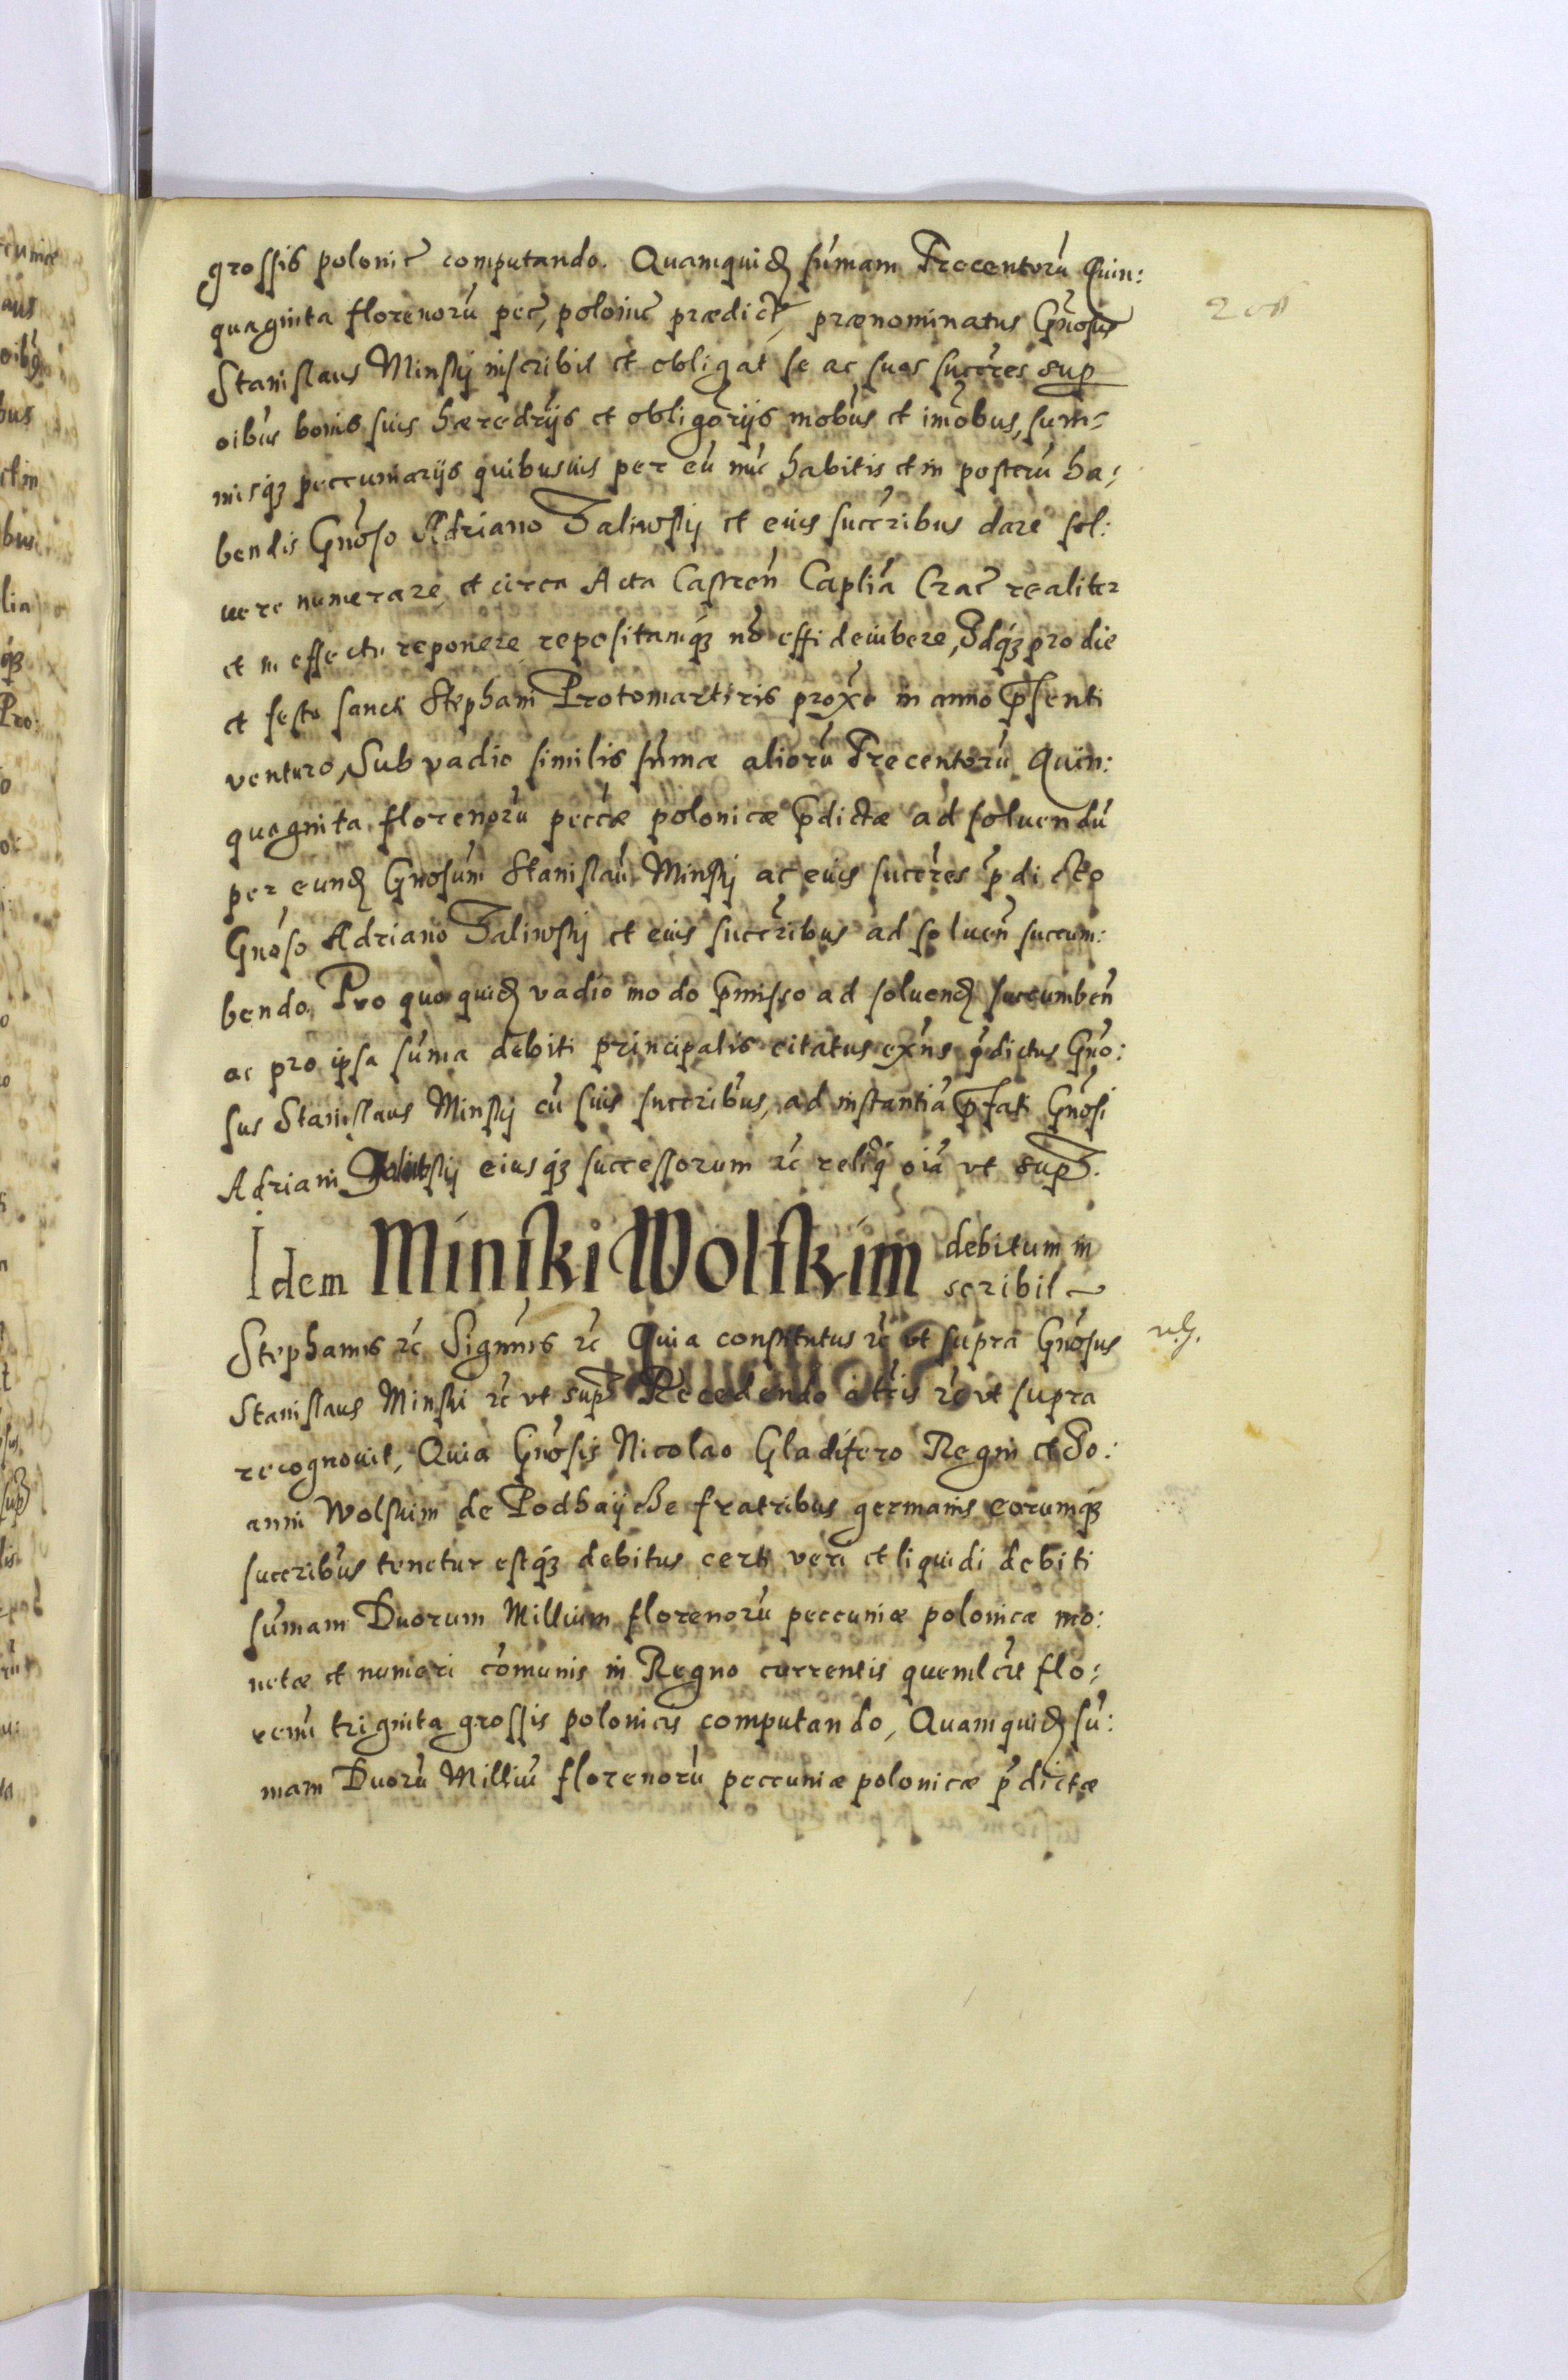 grossis polonic̄ computando. Quamquidē sūmam Trecentorū Quin:
quaginta florenorū pec̄, polonic̄ prædict̄, prænominatus Gn̄osus
Stanislaus Minskij inscribit et obligat se ac suos succr̄es sup
oībus bonis suis hæredrījs et obligōrijs mobūs et īmobus, sum=
misqȝ peccuniarijs quibusuis per eū nūc habitis et in posterū ha:
bendis Gn̄oso Adriano Zaliwskij et eius succr̄ibus dare sol:
uere numerare, et circa Acta Castren̄ Capliā Crac̄ realiter
et in effectu reponere repositamqȝ nō effidevibere, Idqȝ pro die
et festo sancti Stephani Protomartiris prox̄e in anno p̄senti
venturo, Sub vadio similis sūmæ aliorū Trecentorū Quin:
quaginta florenorū peccæ polonicæ p̄dictæ ad soluendū
per eundē Gn̄osum Stanislaū Minskij ac eius succr̄es p̄dicto
Gn̄oso Adriano Zaliwskij et eius succr̄ibus ad soluen̄ succum:
bendo. Pro quo quidē vadio modo p̄misso ad soluendē succumben̄
ac pro ipsa sūma debiti principalis citatus exn̄s p̄dictus Gn̄o:
sus Stanislaus Minskij cū suis succr̄ibus, ad instantiā p̄fati Gn̄osi
Adriani Zaliwskij eiusqȝ successorum rc̄ reliq̄ oīa vt supr̄.
Idem Minski Wolskim debitum in
scribit
Stephanus rc̄ Significamus rc̄ Quia constitutus rc̄ vt supra Gn̄osus rls.
Stanislaus Minski rc̄ vt supr̄ Recedendo a tr̄is rc̄ vt supra
recognouit, Quia Gn̄osis Nicolao Gladifero Regni et Jo:
anni Wolskim de Podhaÿcze fratribus germanis eorumqȝ
succr̄ibus tenetur estqȝ debitus certi veri et liquidi debiti
sūmam Duorum Millium florenorū peccuniæ polonicæ mo:
netæ et numeri cōmunis in Regno currentis quemlēt flo:
renū triginta grossis polonicis computando, Quamquidē sū:
mam Duorū Milliū florenorū peccuniæ polonicæ p̄dictæ